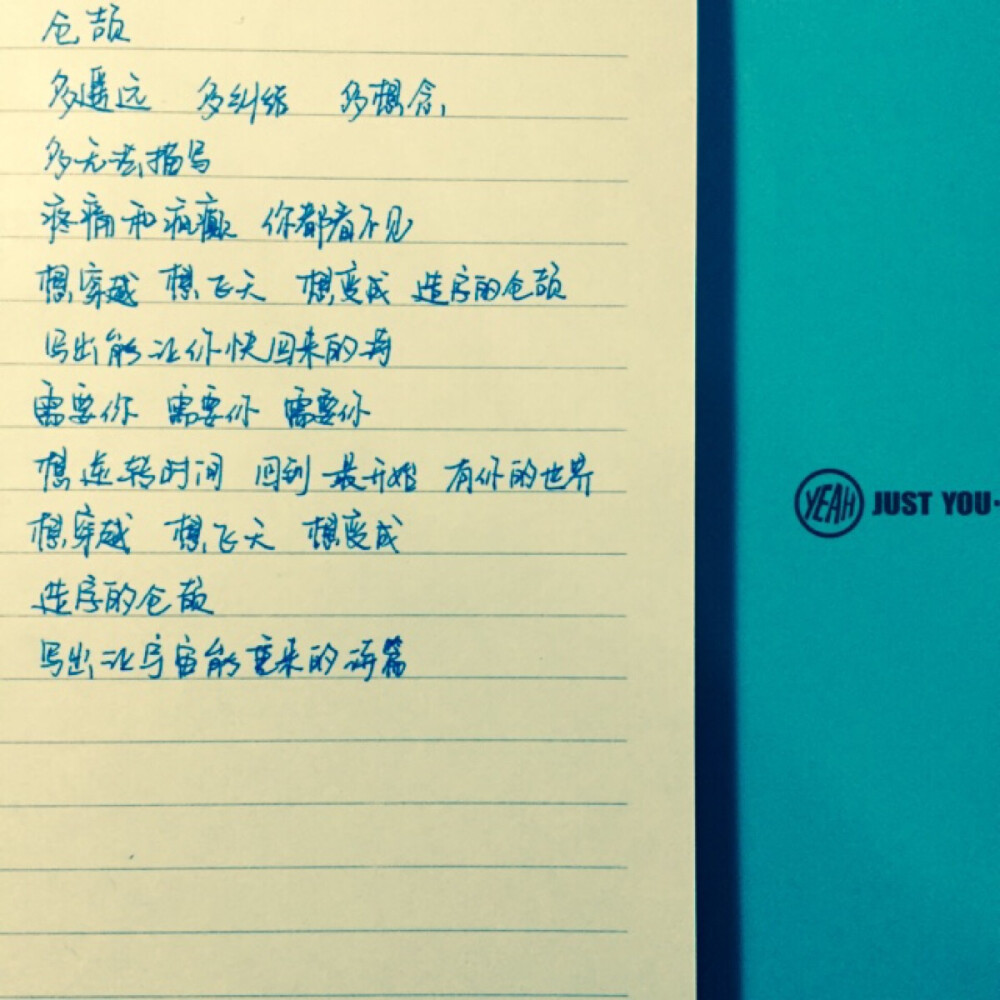 仓颉
多遥远 多纠结 多想念,
多无法描写
疼痛和疯癫 你都看不见
想穿越 想飞天 想变成 造字的仓颉
写出能让你快回来的诗
需要你 需要你 需要你
想逆转时间 回到最开始 有你的世界
想穿越 想飞天 想变成
造字的仓颉
写出让宇宙能重来的诗篇
YEAH JUST YOU·